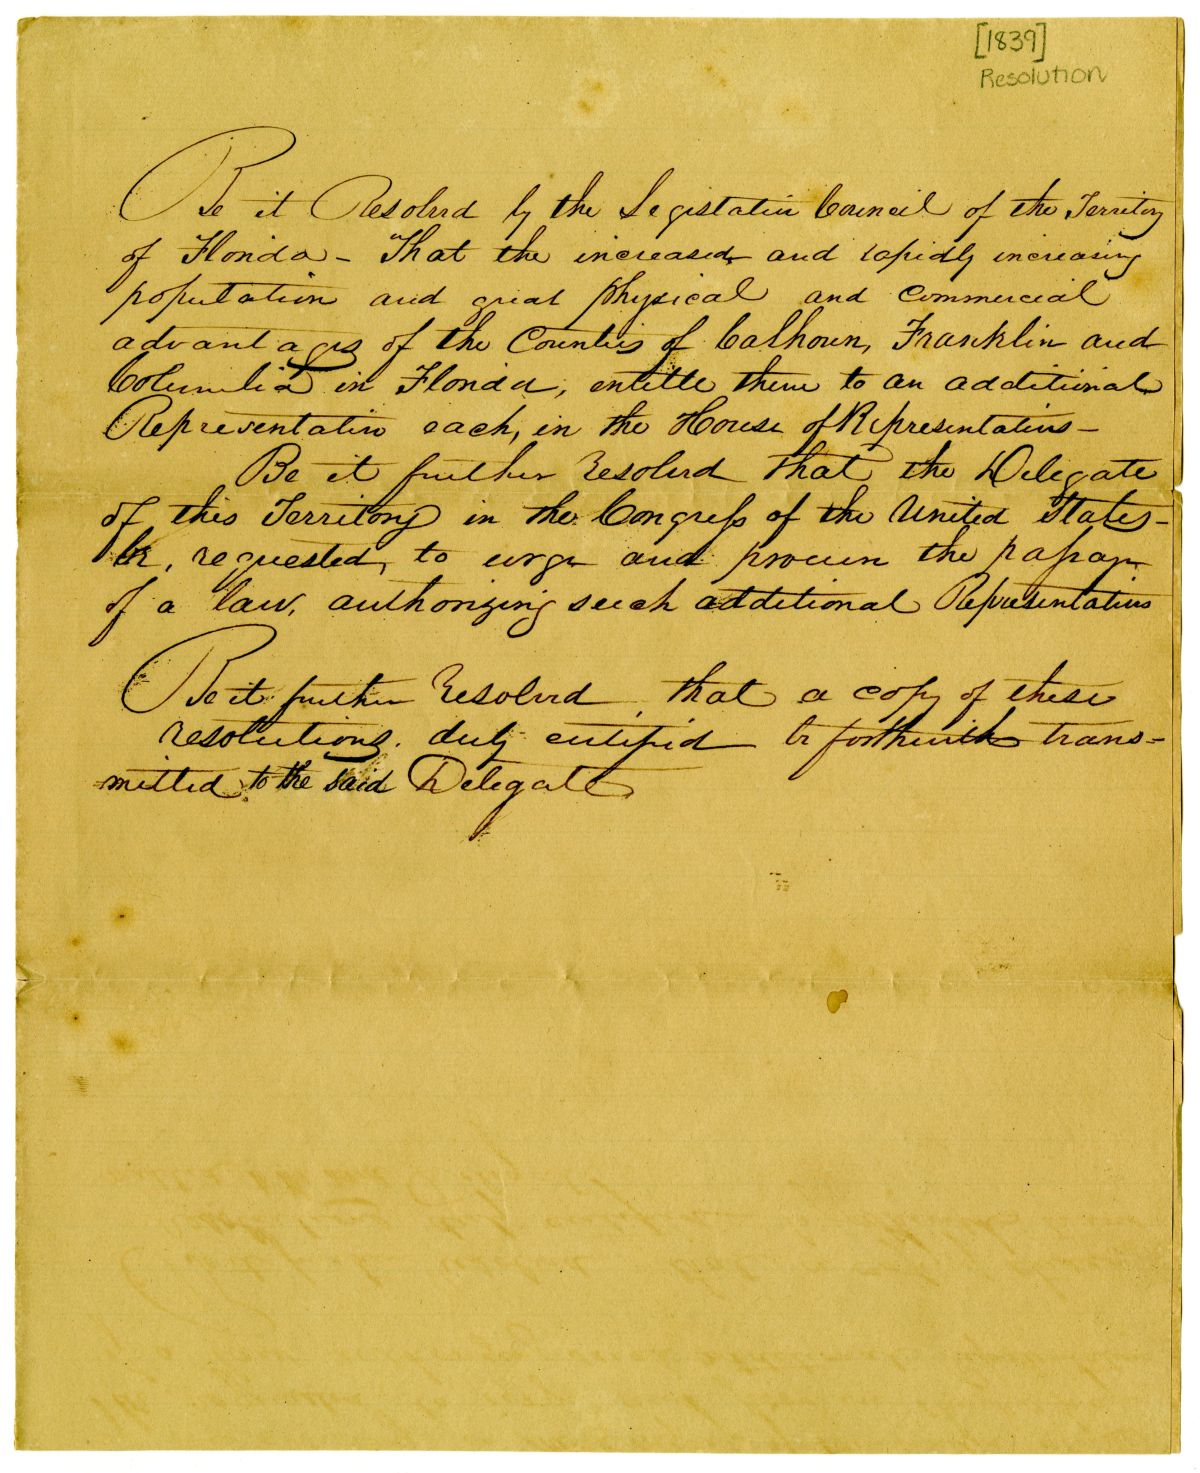 [1839]
Resolution
Be it Resolved by the Legislative Council of the Territory
of Florida - That the increased and rapidly increasing
population and great physical and commercial
advantages of the Counties of Calhoun, Franklin and
Columbia in Florida, entitle them to an additional
Representative each, in the House of Representatives -
Be it further Resolved that the Delegate
of this Territory in the Congress of the United States -
be, requested, to urge and procure the passage
of a law, authorizing such additional Representatives
Be it further Resolved that a copy of these
resolutions. duly certified be forthwith trans=
mitted to the said Delegate